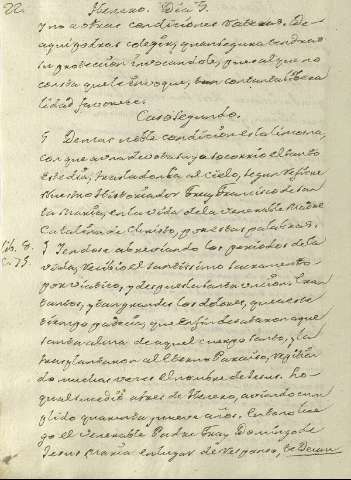 22. Henero. Dia 3.
y no a otras condiciones
aqui podras colegir, quan segura tendras
su proteccion invocandole, pues al que no
consta que le invoque, con tanta libera
lidad favorece.
Caso segundo.
§ De mas noble condicion es la
con que a una devota suya socorrio el Santo
este dia, trasladandola al cielo, segun refiere
nuestro Historiador Fray Francisco de San
ta Maria, en la vida de la venerable Madre
Catalina de Christo, por estas palabras.
lib. 8. § Yendose abreviando los periodos de la
c. 75. vida, recibio el santissimo sacramento
por viatico, y despues la santa uncion. Eran
tantos, y tan grandes los dolores, que a este
tiempo padecia, que en fin desataron aque
lla santa alma de aquel cuerpo santo, y la
trasplantaron al eterno Paraiso, repitien
do muchas veces el nombre de Jesus. Lo
qual sucedio a tres de Henero, aviendo cum
plido quarenta y nueve años. Entono lue
go el venerable Padre Fray Domingo de
Jesus Maria en lugar de responso, Te Deum